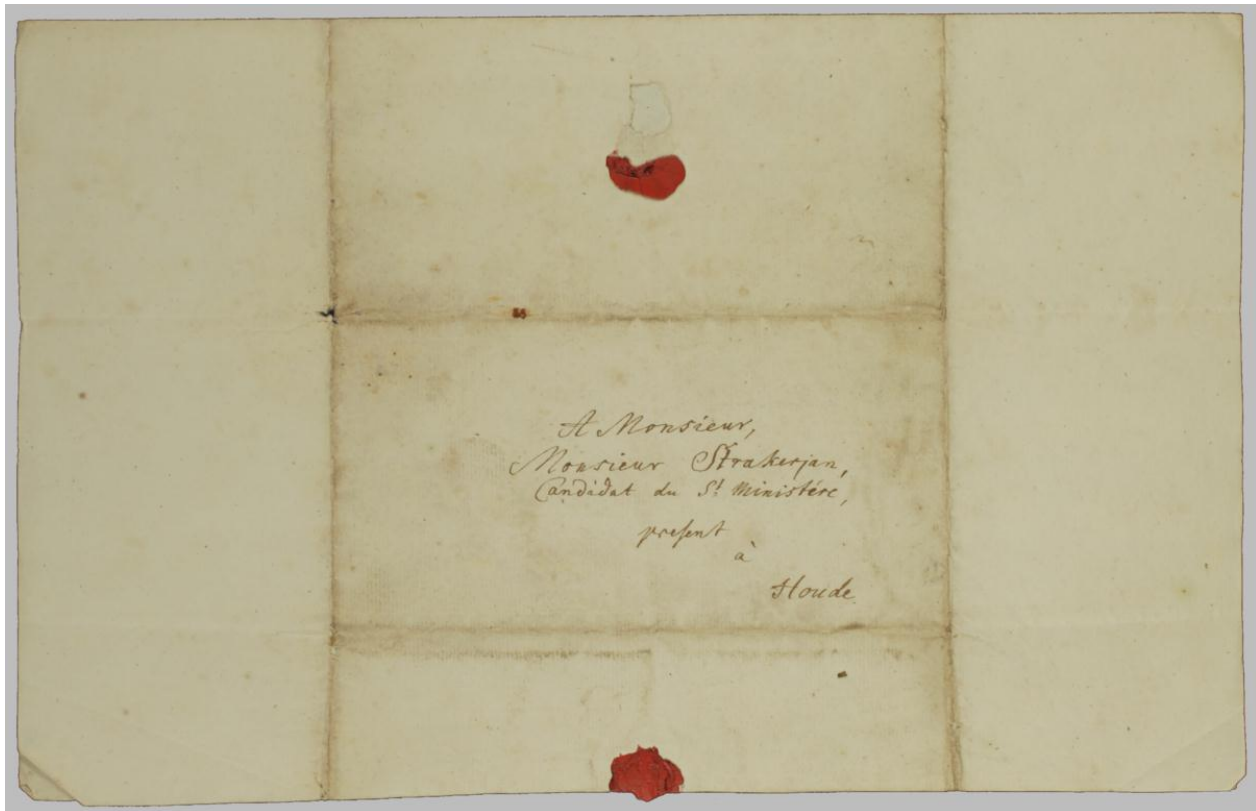 A Monsieur,
Monsieur Strakerjan,
Candidat du St Ministére,
present
à
Houde